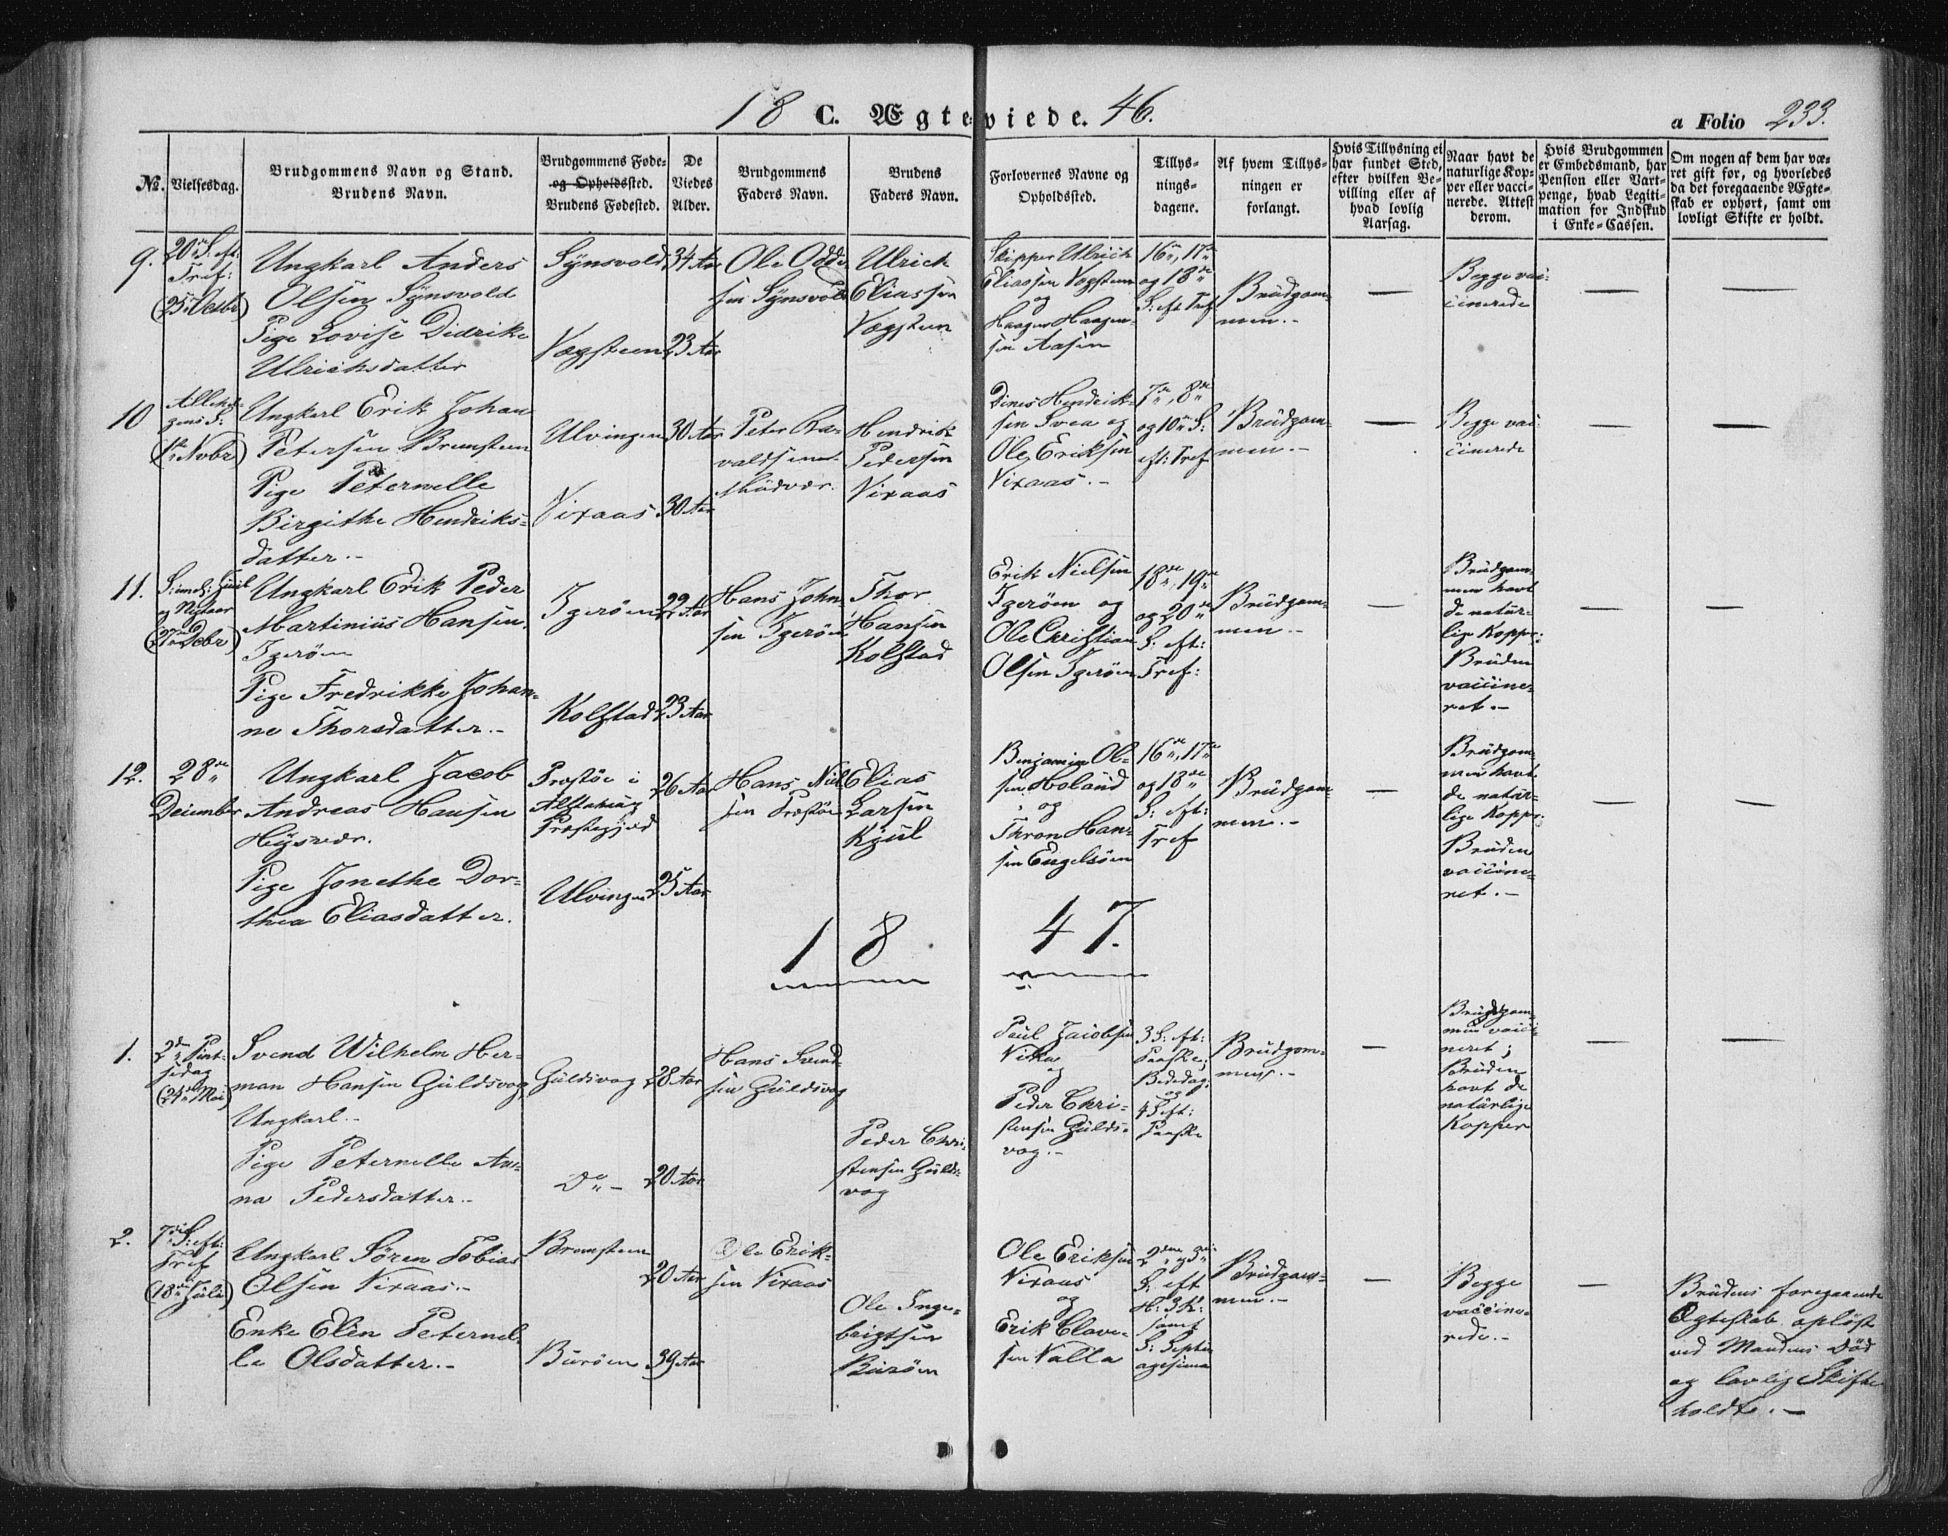 18 C. Ægteviede. 46. a Folio 233.
No.
Vielsesdag.
Brudgommens Navn og Stand.
Brudens Navn.
Brudgommens Føde-
og Opholdssted.
Brudens Fødested.
De
Viedes
Alder.
Brudgommens
Faders Navn.
Brudens
Faders Navn.
Forlovernes Navne og
Opholdssted.
Tillys-
nings-
dagene.
Af hvem Tillys-
ningen er
forlangt.
Hvis Tillysning ei
har fundet Sted,
efter hvilken Be-
villing eller af
hvad lovlig
Aarsag.
Naar havt de
naturlige Kop-
per eller vacci-
nerede. Attest
derom.
Hvis Brudgommen
er Embedsmand, har
Pension eller Vart-
penge, hvad Legiti-
mation for Indskud
i Enke-Cassen.
Om nogen af dem har væ-
ret gift før, og hvorledes
da det foregaaende Ægte-
skab er ophørt, samt om
lovligt Skifte er holdt.
9.
20de S. eft:
Tref:
(25 Octbr)
Ungkarl Anders
Olsen Synsvold
Pige Lovise Didrike
Ulrichsdatter
Synsvold
Vægsteen
34 Aar
23 Aar
Ole Odd
sen Synsvold
Ulrich
Eliassen
Vægsteen
Skipper Ulrich
Eliassen Vægsteen
og
Haagen Haagen-
sen Aasen
16de, 17de
og 18de
S: eft Tref
Brüdgom-
men.-
—
Begge vac-
cinerede
—
—
10
Allehel-
gens S:
(1ste Novbr)
Ungkarl Erik Johan
Petersen Bremsteen
Pige Peternelle
Birgithe Hendriks-
datter.-
Ulvingen
Vixaas
30 Aar
30 Aar
Peter Ra-
valdsen
Hendrik
Pedersen
Vixaas
Dines Hendrik-
sen Svea og
Ole Eriksen
Vixaas.-
7de, 8de
og 10de S:
eft: Tref
Brüdgom-
men.-
—
Begge vac-
cinerede
—
—
11.
S: imel: Juul
og Nytaar
(27de Debr)
Ungkarl Erik Peder
Martinius Hansen
Igerøen
Pige Fredrikke Johan-
ne Thorsdatter.-
Igerøen
Kolstad
22 Aar
23 Aar
Hans John
sen Igerøen
Thor
Hansen
Kolstad
Erik Nielsen
Igerøen og
Ole Christian
Olsen Igerøen
18de, 19de
og 20de
S: eft:
Tref:
Brüdgom-
men.-
—
Brüdgom-
men havt
de natür-
lige Kopper;
Brüden
vaccine-
ret.-
—
—
12.
28de
December
Ungkarl Jacob
Andreas Hansen
Høysvær.
Pige Jonethe Dor-
thea Eliasdatter.
Præstøe i
Alstahoug
Præstegjeld
Ulvingen
26 Aar
25 Aar
Hans Niel
sen Præstøe
Elias
Larsen
Kjul
Benjamin Ol-
sen Holand
og
Thron Han-
sen Engelsøen
16de, 17de
og 18de
S: eft:
Tref
Brüdgom-
men.-
—
Brüdgom-
men havt
de natür-
lige Kopper;
Brüden
vaccine-
ret.-
—
—
18 47.
1.
2den Pint-
sedag
(24de Mai)
Svend Wilhelm Her-
man Hansen Güldsvog
Ungkarl.-
Pige Peternelle An-
na Pedersdatter.-
Güldsvog
Do -
28 Aar
20 Aar
Hans Svend
sen Güldsvog
Peder Chri-
stensen Gülds-
vog
Paul Jacobsen
Vikan
og
Peder Chri-
stensen Gülds-
vog.-
3 S: eft:
Paaske;
Bededag
og
4 S eft:
Paaske
Brüdgom-
men.-
—
Brüdgom-
men vacci-
neret;
Brüden
havt de
natürlige
Kopper
—
—
2.
7de S: eft:
Tref
(18de Juli)
Ungkarl Sören Tobias
Olsen Vixaas.-
Enke Elen Peternel-
le Olsdatter.-
Bremsteen
Burøen
20 Aar
39 Aar
Ole Erik-
sen Vixaas
Ole Inge-
brigtsen
Burøen
Ole Eriksen
Vixaas
og
Erik Clave-
sen Valla
2den, 3die
S: eft
H: 3 K:
samt
S: Septu
agesima
Brüdgom-
men.-
—
Begge
vaccine-
rede.-
—
Brüdens foregaaende
Ægteskab opløst
ved Mandens Død
og lovlig Skifte
holdt.-